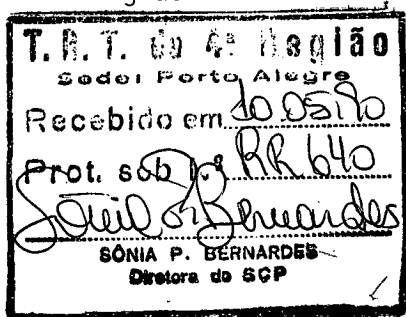 T. R. T. da 4ª Região
Sede: Porto Alegre
Recebido em 10.05.90
Prot. sob n.º RR 640
Sônia P. Bernardes
SÔNIA P. BERNARDES
Diretora do SCP